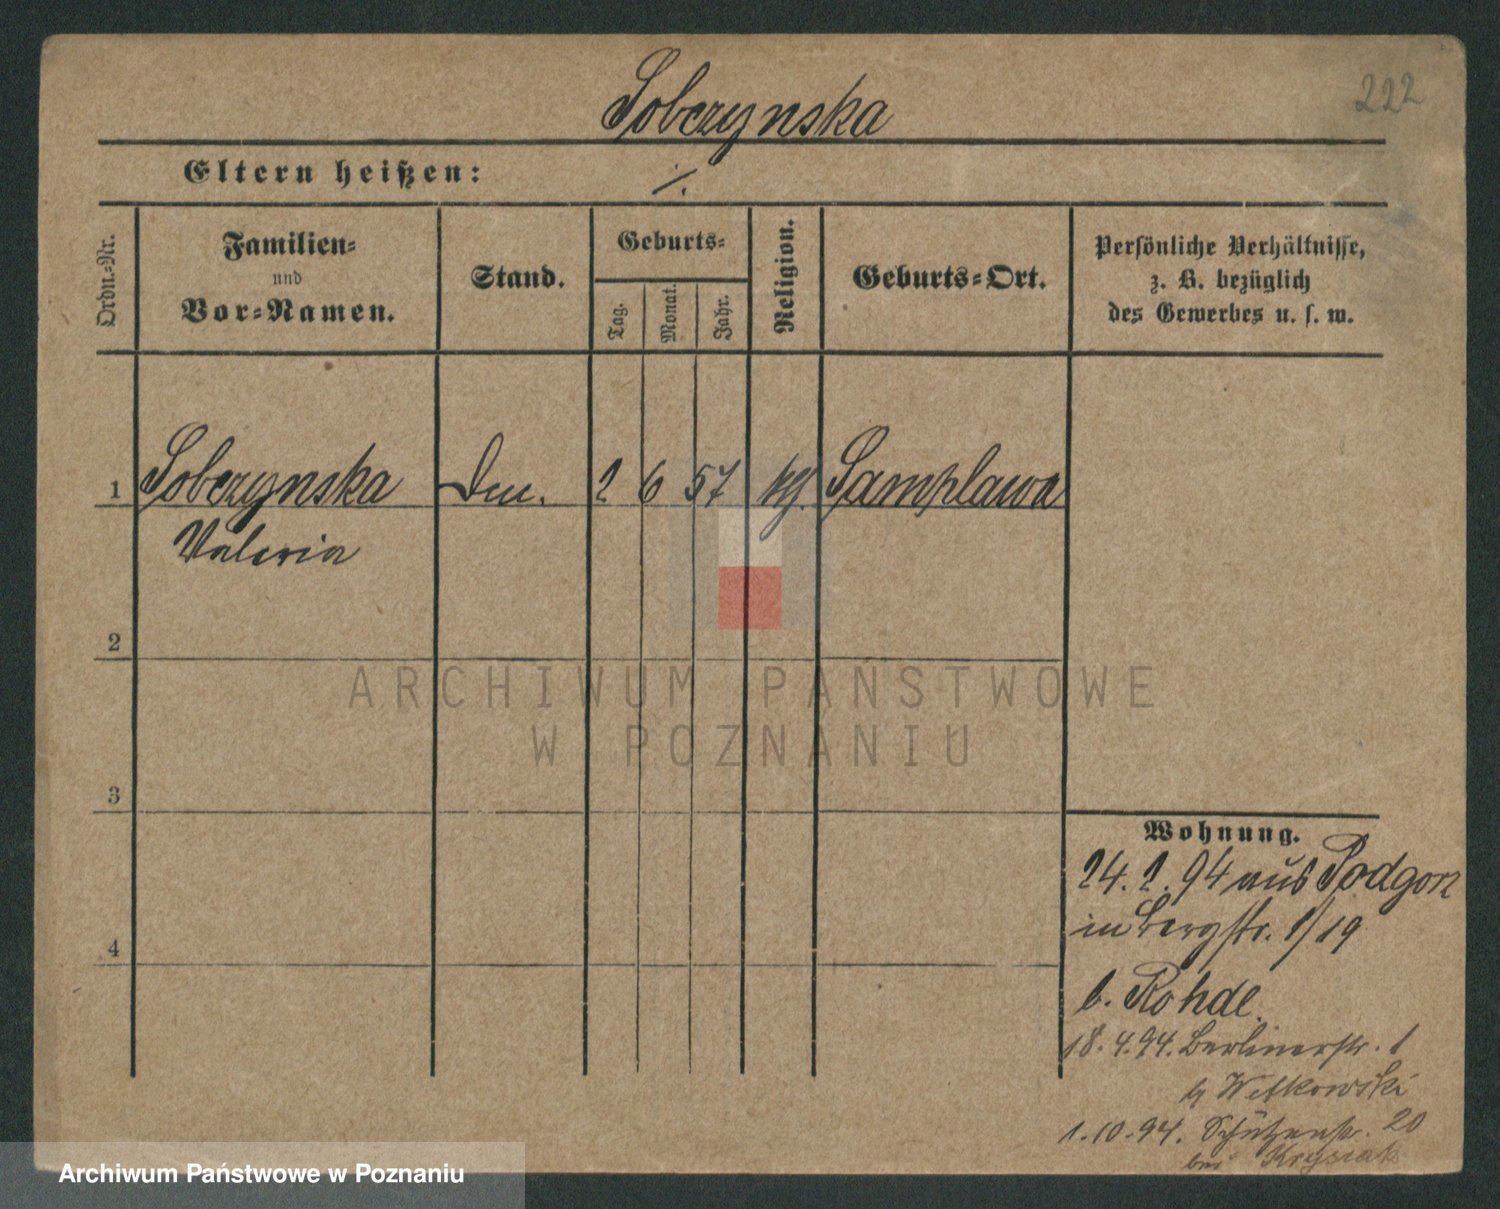 222
Sobczynska
Eltern heißen: ·/.
Ordn.-Nr.
Familien-
und
Vor-Namen.
Stand.
Geburts-
Tag.
Monat.
Jahr.
Religion.
Geburts-Ort.
Persönliche Verhältnisse,
z. B. bezüglich
des Gewerbes u. s. w.
1 Sobczynska 2 6 57 kth. Samplawa
Valeria
2
ARCHIWUM PAŃSTWOWE
W POZNANIU
3
4
Wohnung.
24. 2. 94 aus Podgorz
in Bergstr. 1/19
b. Rohde.
18. 4. 94. Berlinerstr. 1
b/ Witkowski
1.10.94. Schützenstr. 20
bei Krysiak
Archiwum Państwowe w Poznaniu